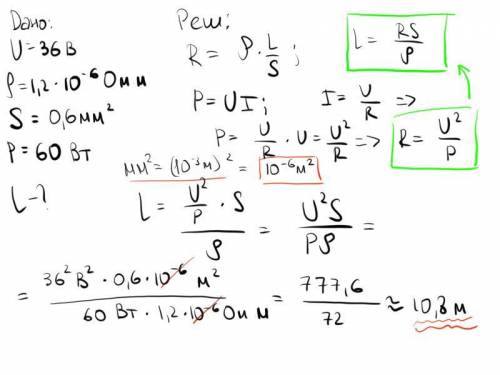 Дано:
U=36В
ρ=1,2·10⁻⁶Ом м
S=0,6мм²
P=60 Вт
L-?
Реш:
R= ρ· L/S ;
L= RS/ρ
P=UI; I= U/R =>
P= U/R · U= U²/R => R= U²/P
мм²=(10⁻³м)²= 10⁻⁶м²
L= (U²/P · S)/ρ = U²S/Pρ =
= (36²В² · 0,6·10⁻⁶ м²)/(60 Вт · 1,2·10⁻⁶Ом м) = 777,6/72 ≈ 10,8 м